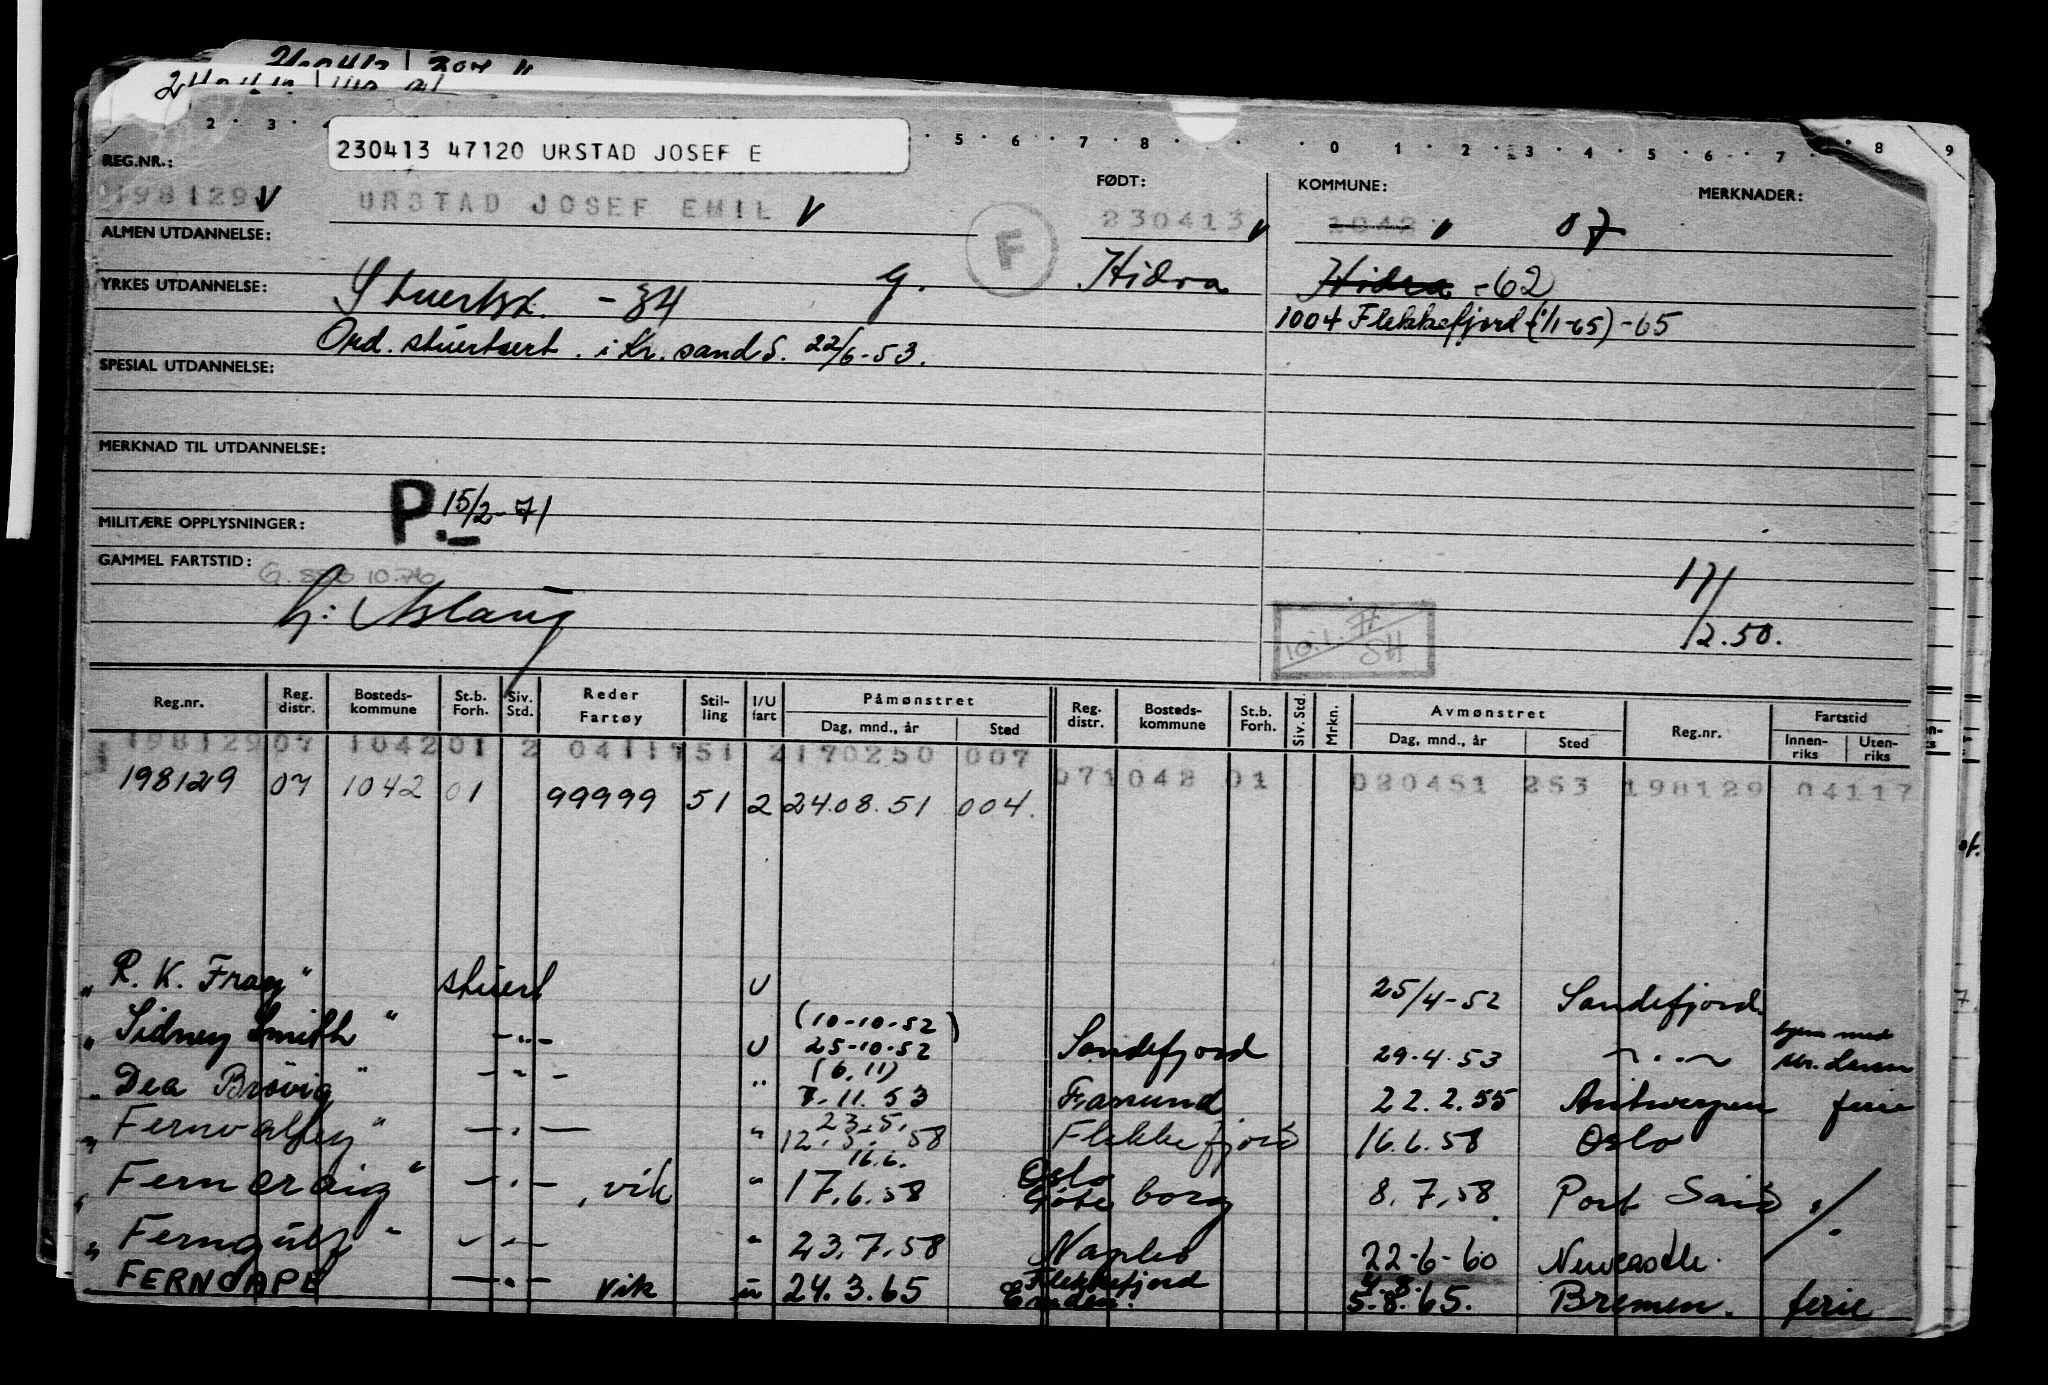 2 . 3 . 5 . 6 . 7 . 8 . 0 . 1 . 2 . 3 . 4 . 5 . 6 . 7 . 8 9
230413 47120 URSTAD JOSEF E
REG.NR.: FØDT: KOMMUNE: MERKNADER:
198129 V URSTAD JOSEF EMIL V F 230413 V 1042 V 07
ALMEN UTDANNELSE:
Hidra Hidra -62
YRKES UTDANNELSE: Stuertsk. -34 G.
1004 Flekkefjord (1/1-65) -65
Ord. stuertsert. i Kr.sand S. 22/6-53.
SPESIAL UTDANNELSE:
MERKNAD TIL UTDANNELSE:
P. 15/2-71
MILITÆRE OPPLYSNINGER:
GAMMEL FARTSTID:
h: Aslaug
17/
12.50.
Reg.nr. Reg. distr. Bosteds-kommune St.b. Forh. Siv. Std. Reder Fartøy Stil-ling I/U fart Påmønstret Dag, mnd., år Sted Reg. distr. Bosteds-kommune St.b. Forh. Siv. Std. Mrkn. Avmønstret Dag, mnd., år Sted Reg.nr. Fartstid Innen-riks Uten-riks
198129 07 1042 01 2 04117 51 2 170250 007 07 1042 01 020451 253 198129 04117
198129 07 1042 01 99999 51 2 24.08.51 004.
"R. K. Fray" stuert U 25/4-52 Sandefjord.
"Sidney Smith" -"- U (10-10-52) 25-10-52 Sandefjord 29-4-53 -"-
"Dea Brövig" -"- " (6.11) 7.11.53 Farsund 22.2.55 Antwerpen ferie
"Fernvalley" -"- " 23.5. 12.5.58 Flekkefjord 16.6.58 Oslo
"Ferncraig" -"- , vik " 16.6. 17.6.58 Oslo Göteborg 8.7.58 Port Said
"Ferngulf" -"- " 23.7.58 Naples 22-6-60 Newcastle.
" FERNCAPE -"- vik u 24.3.65 Flekkefjord Emden. 5.8.65. Bremen. ferie